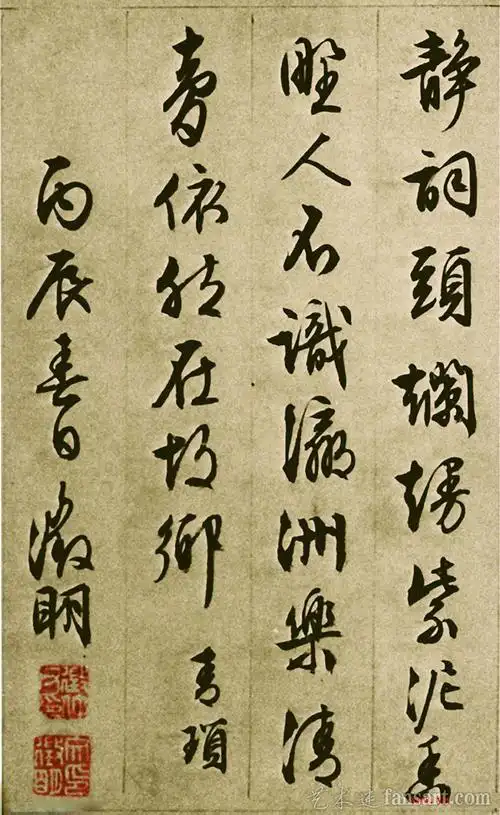 静詞頭爛熳紫泥香
野人不識瀛洲樂清
夢依然在故鄉 青瑣
丙辰春日徵明
fansart.com